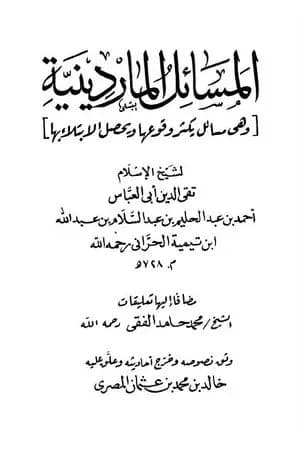 المسائل الماردينية
[وهى مسائل يكثر وقوعها ويحصل الابتلاء بها]
لشيخ الإسلام
تقى الدين أبى العباس
أحمد بن عبد الحليم بن عبد السلام بن عبد الله
ابن تيمية الحرانى رحمه الله
م. ٧٢٨ هـ
مضافا إليها تعليقات
الشيخ / محمد حامد الفقى رحمه الله
وثق نصوصه وخرج أحاديثه وعلق عليه
خالد بن محمد بن عثمان المصرى